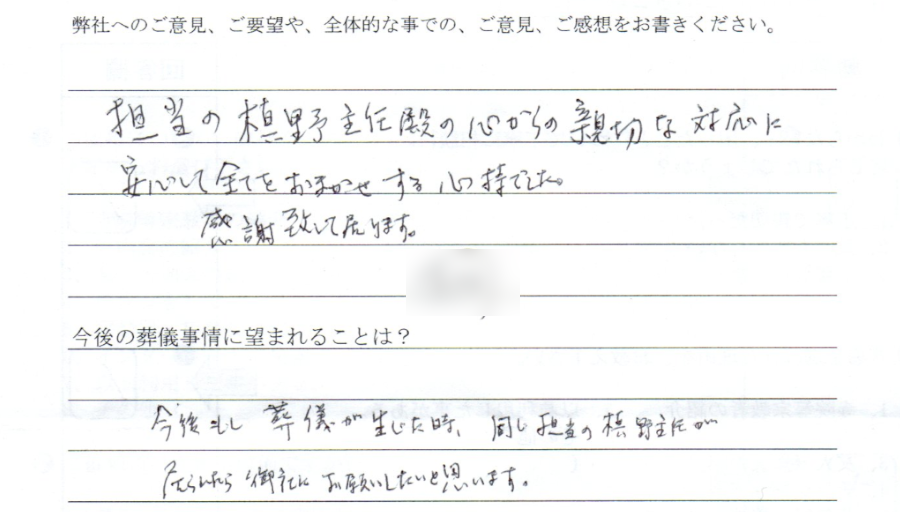 弊社へのご意見、ご要望や、全体的な事での、ご意見、ご感想をお書きください。
担当の槙野主任殿の心からの親切な対応に
安心して全てをおまかせする心持でした。
感謝致して居ります。
今後の葬儀事情に望まれることは?
今後もし葬儀が生じた時、同じ担当の槙野主任が
居られたら御社にお願いしたいと思います。